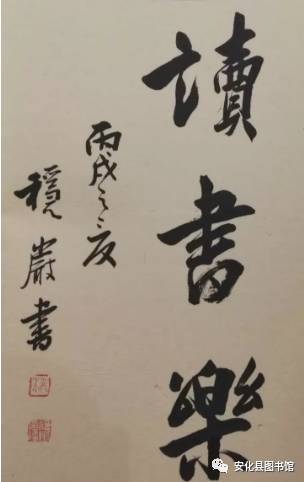 讀書樂
丙戌之夏
穩嚴書
安化县图书馆